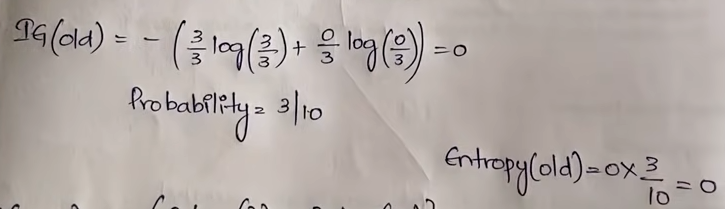 IG(old) = - (3/3 log(3/3) + 0/3 log(0/3)) = 0
Probability = 3/10
Entropy(old) = 0 × 3/10 = 0